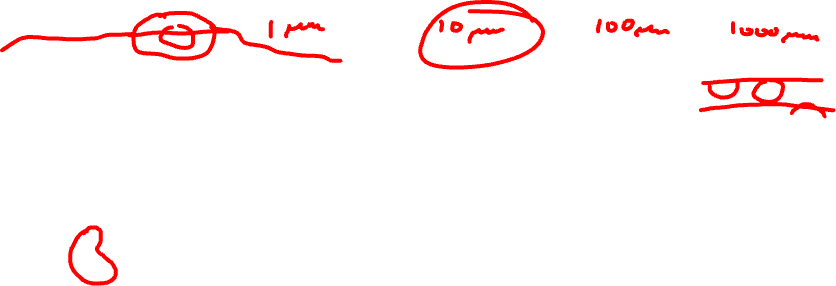 1 μm 10 μm 100 μm 1000 μm